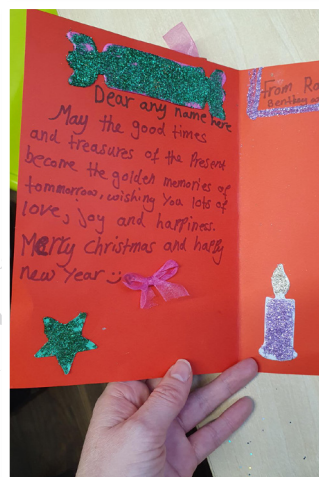 Dear any name here
May the good times
and treasures of the Present
become the golden memories of
tommorrow. wishing you lots of
love, joy and happiness.
Merry christmas and happy
new year :)
From